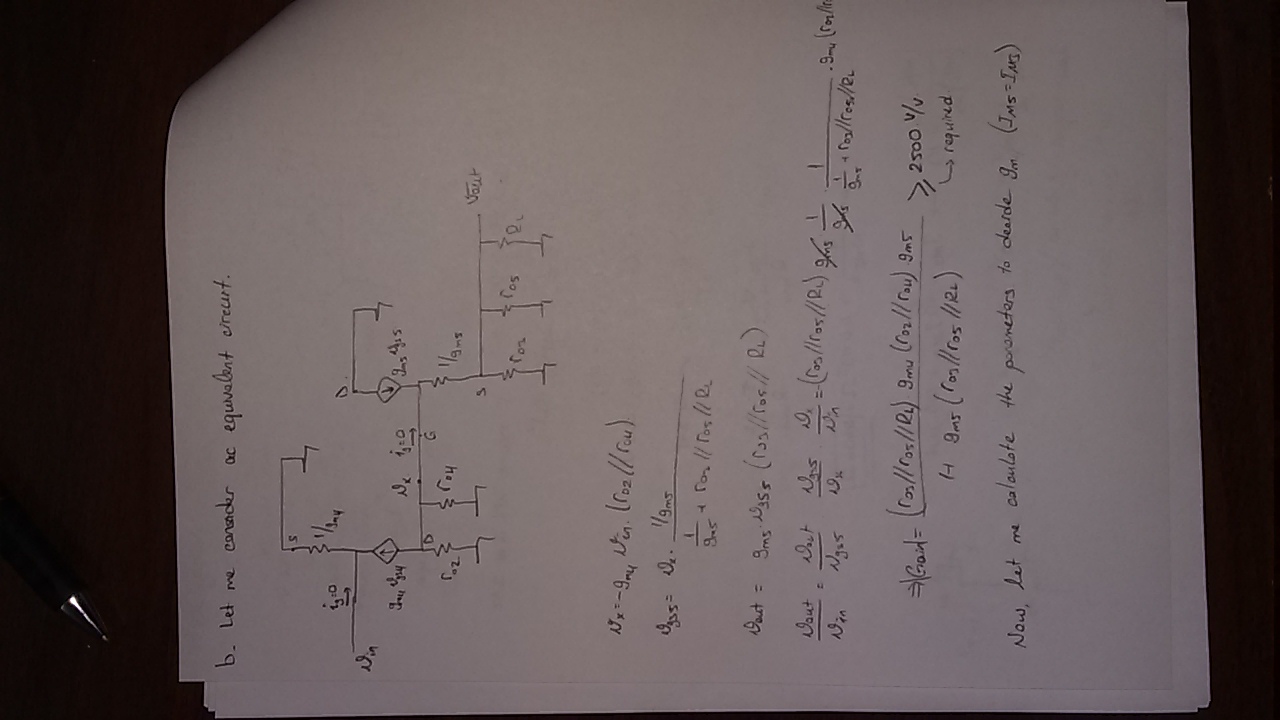 b. Let me consider ac equivalent circuit.
S
1/gm4
Vin
ig=0
gm4 vgs4
D
ro2
ro4
Vx
ig=0
G
D
gm5 vgs5
1/gm5
S
ro3
ro5
RL
Vout
Vx = -gm4 Vin. (ro2//ro4)
Vgs5 = Vx. (1/gm5) / (1/gm5 + ro3//ro5//RL)
Vout = gm5. Vgs5 (ro3//ro5//RL)
Vout/Vin = Vout/Vgs5 . Vgs5/Vx . Vx/Vin = -(ro3//ro5//RL) gm5 . 1/gm5 . 1/(1/gm5 + ro3//ro5//RL) . gm4 (ro2//r
⇒|Gain| = (ro3//ro5//RL) gm4 (ro2//ro4) gm5 / 1+ gm5 (ro3//ro5//RL) ≥ 2500 V/V
↳ required
Now, let me calculate the parameters to decide gm (IM5 = IM3)